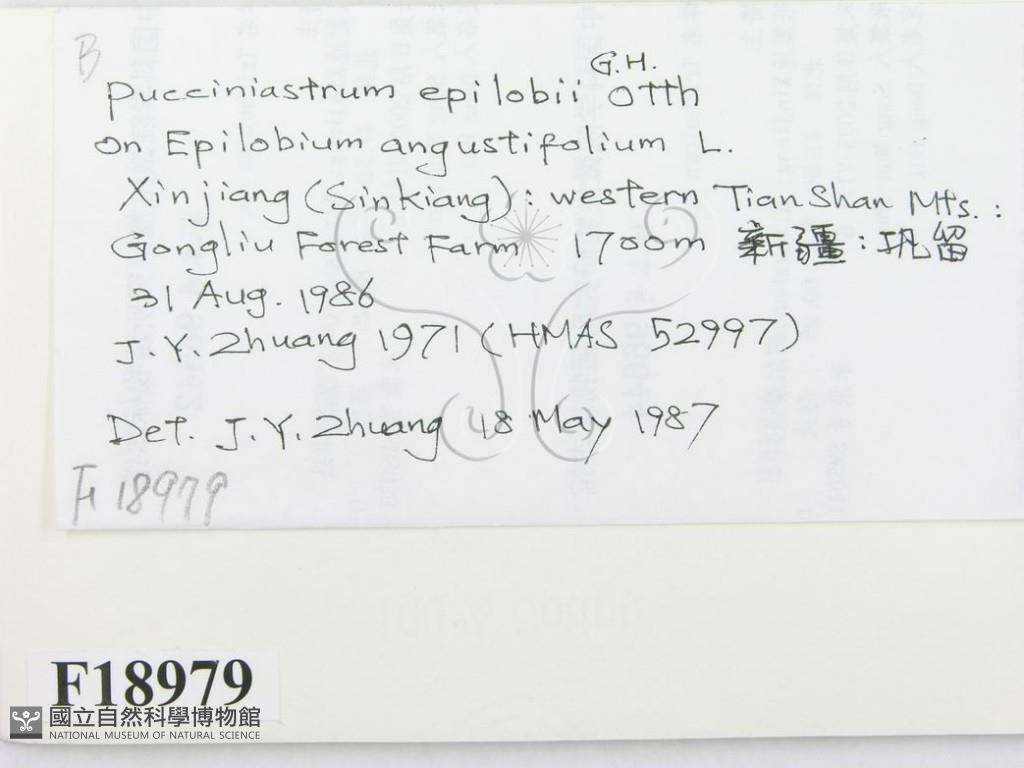 B
G.H.
Pucciniastrum epilobii Otth
on Epilobium angustifolium L.
Xinjiang (Sinkiang): western Tian Shan Mts.:
Gongliu Forest Farm 1700m 新疆:巩留
31 Aug. 1986
J.Y. Zhuang 1971 (HMAS 52997)
Det. J.Y. Zhuang 18 May 1987
F18979
F18979
國立自然科學博物館
NATIONAL MUSEUM OF NATURAL SCIENCE